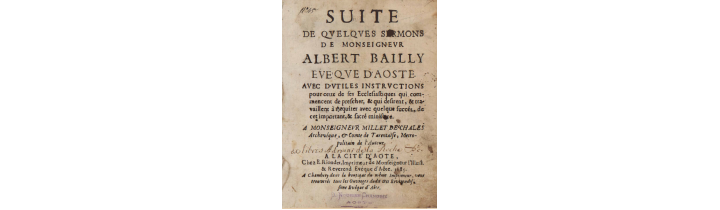 SUITE
DE QVELQVES SERMONS
DE MONSEIGNEVR
ALBERT BAILLY
EVEQVE D'AOSTE
AVEC D'VTILES INSTRVCTIONS
pour ceux de ses Ecclesiastiques qui com-
mencent de prescher, & qui desirent, & tra-
vaillent à s'equiter avec quelque succés, de
cet important, & sacré ministere.
A MONSEIGNEVR MILLET DE CHALES
Archevéque, & Comte de Tarentaise, Metro-
politain de
A LA CITÉ D'AOTE,
Chez Imprimeur de Monseigneur l'Illust.
& Reverend Evéque d'Aôte.
A Chambery dans la boutique du même Imprimeur, vous
trouverés tous les Ouvrages dudit
sime Evéque d'Aôte.